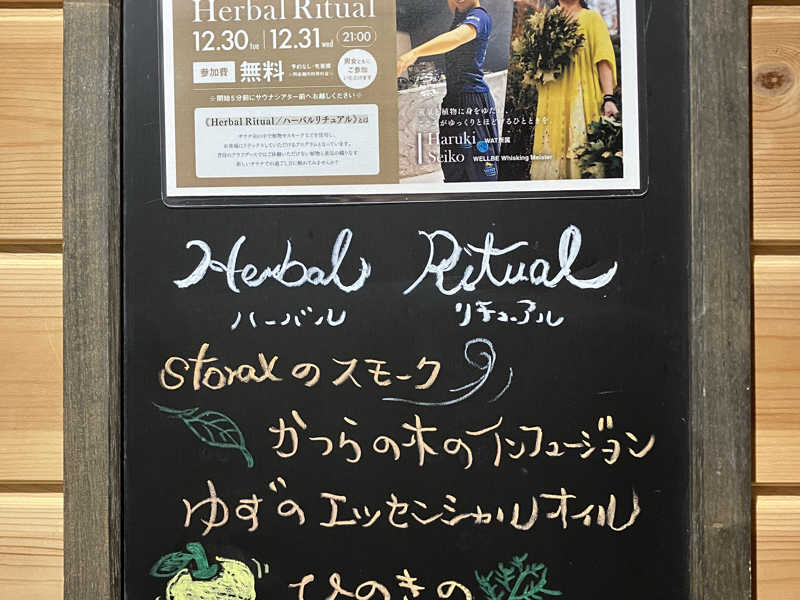 Herbal Ritual
12.30 tue 12.31 wed 21:00
参加費 無料
男女ともに
ご参加
いただけます
※開始5分前にサウナシアター前へお越しください※
《Herbal Ritual／ハーバルリチュアル》とは
Haruki WAT所属
Seiko WELLBE Whisking Meister
Herbal Ritual
ハーバル リチュアル
Storaxのスモーク
かつらの木のインフュージョン
ゆずのエッセンシャルオイル
ひのきの